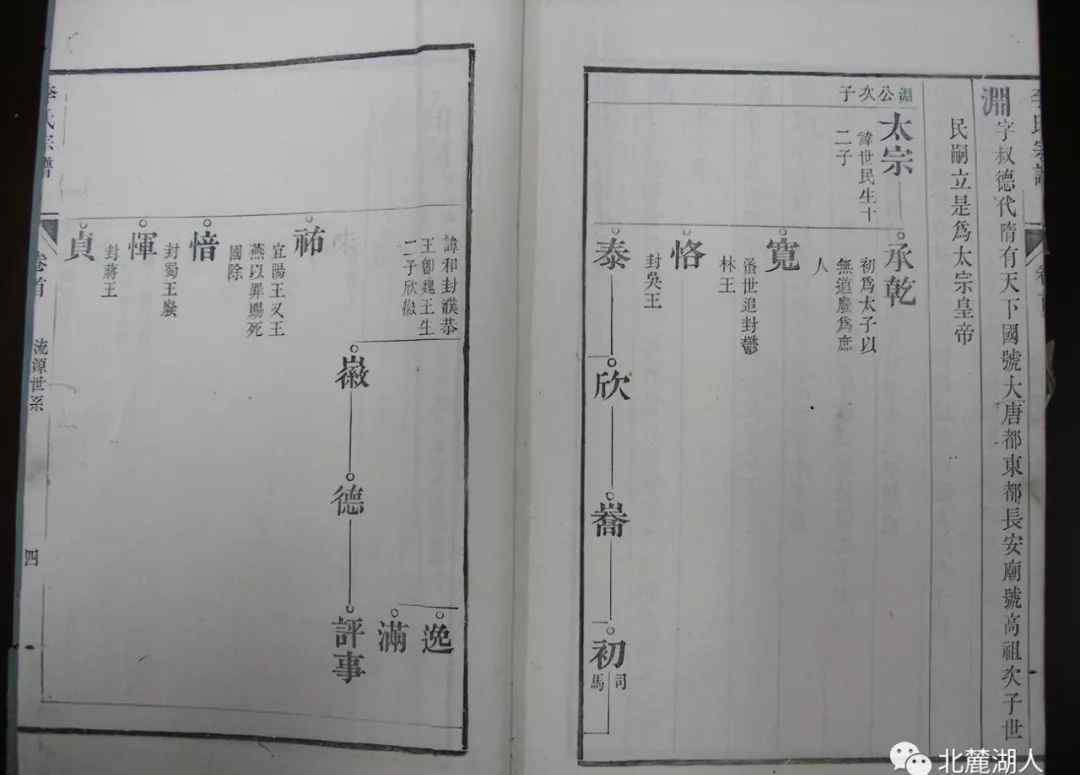 淵字叔德代隋有天下國號大唐都東都長安廟號高祖次子世
民嗣立是爲太宗皇帝
淵公次子
太宗
諱世民生十
二子
承乾
初爲太子以
無道廢爲庶
人
寬
蚤世追封鬱
林王
恪
封吳王
泰
欣
喬
初
司馬
李氏宗譜
諱和封濮恭
王卽魏王生
二子欣徽
逸
滿
徽
德
評事
祐
宜陽王又王
燕以罪賜死
國除
愔
封蜀王廢
惲
封蔣王
貞
李氏宗譜
卷首
流源世系
四
北麓湖人